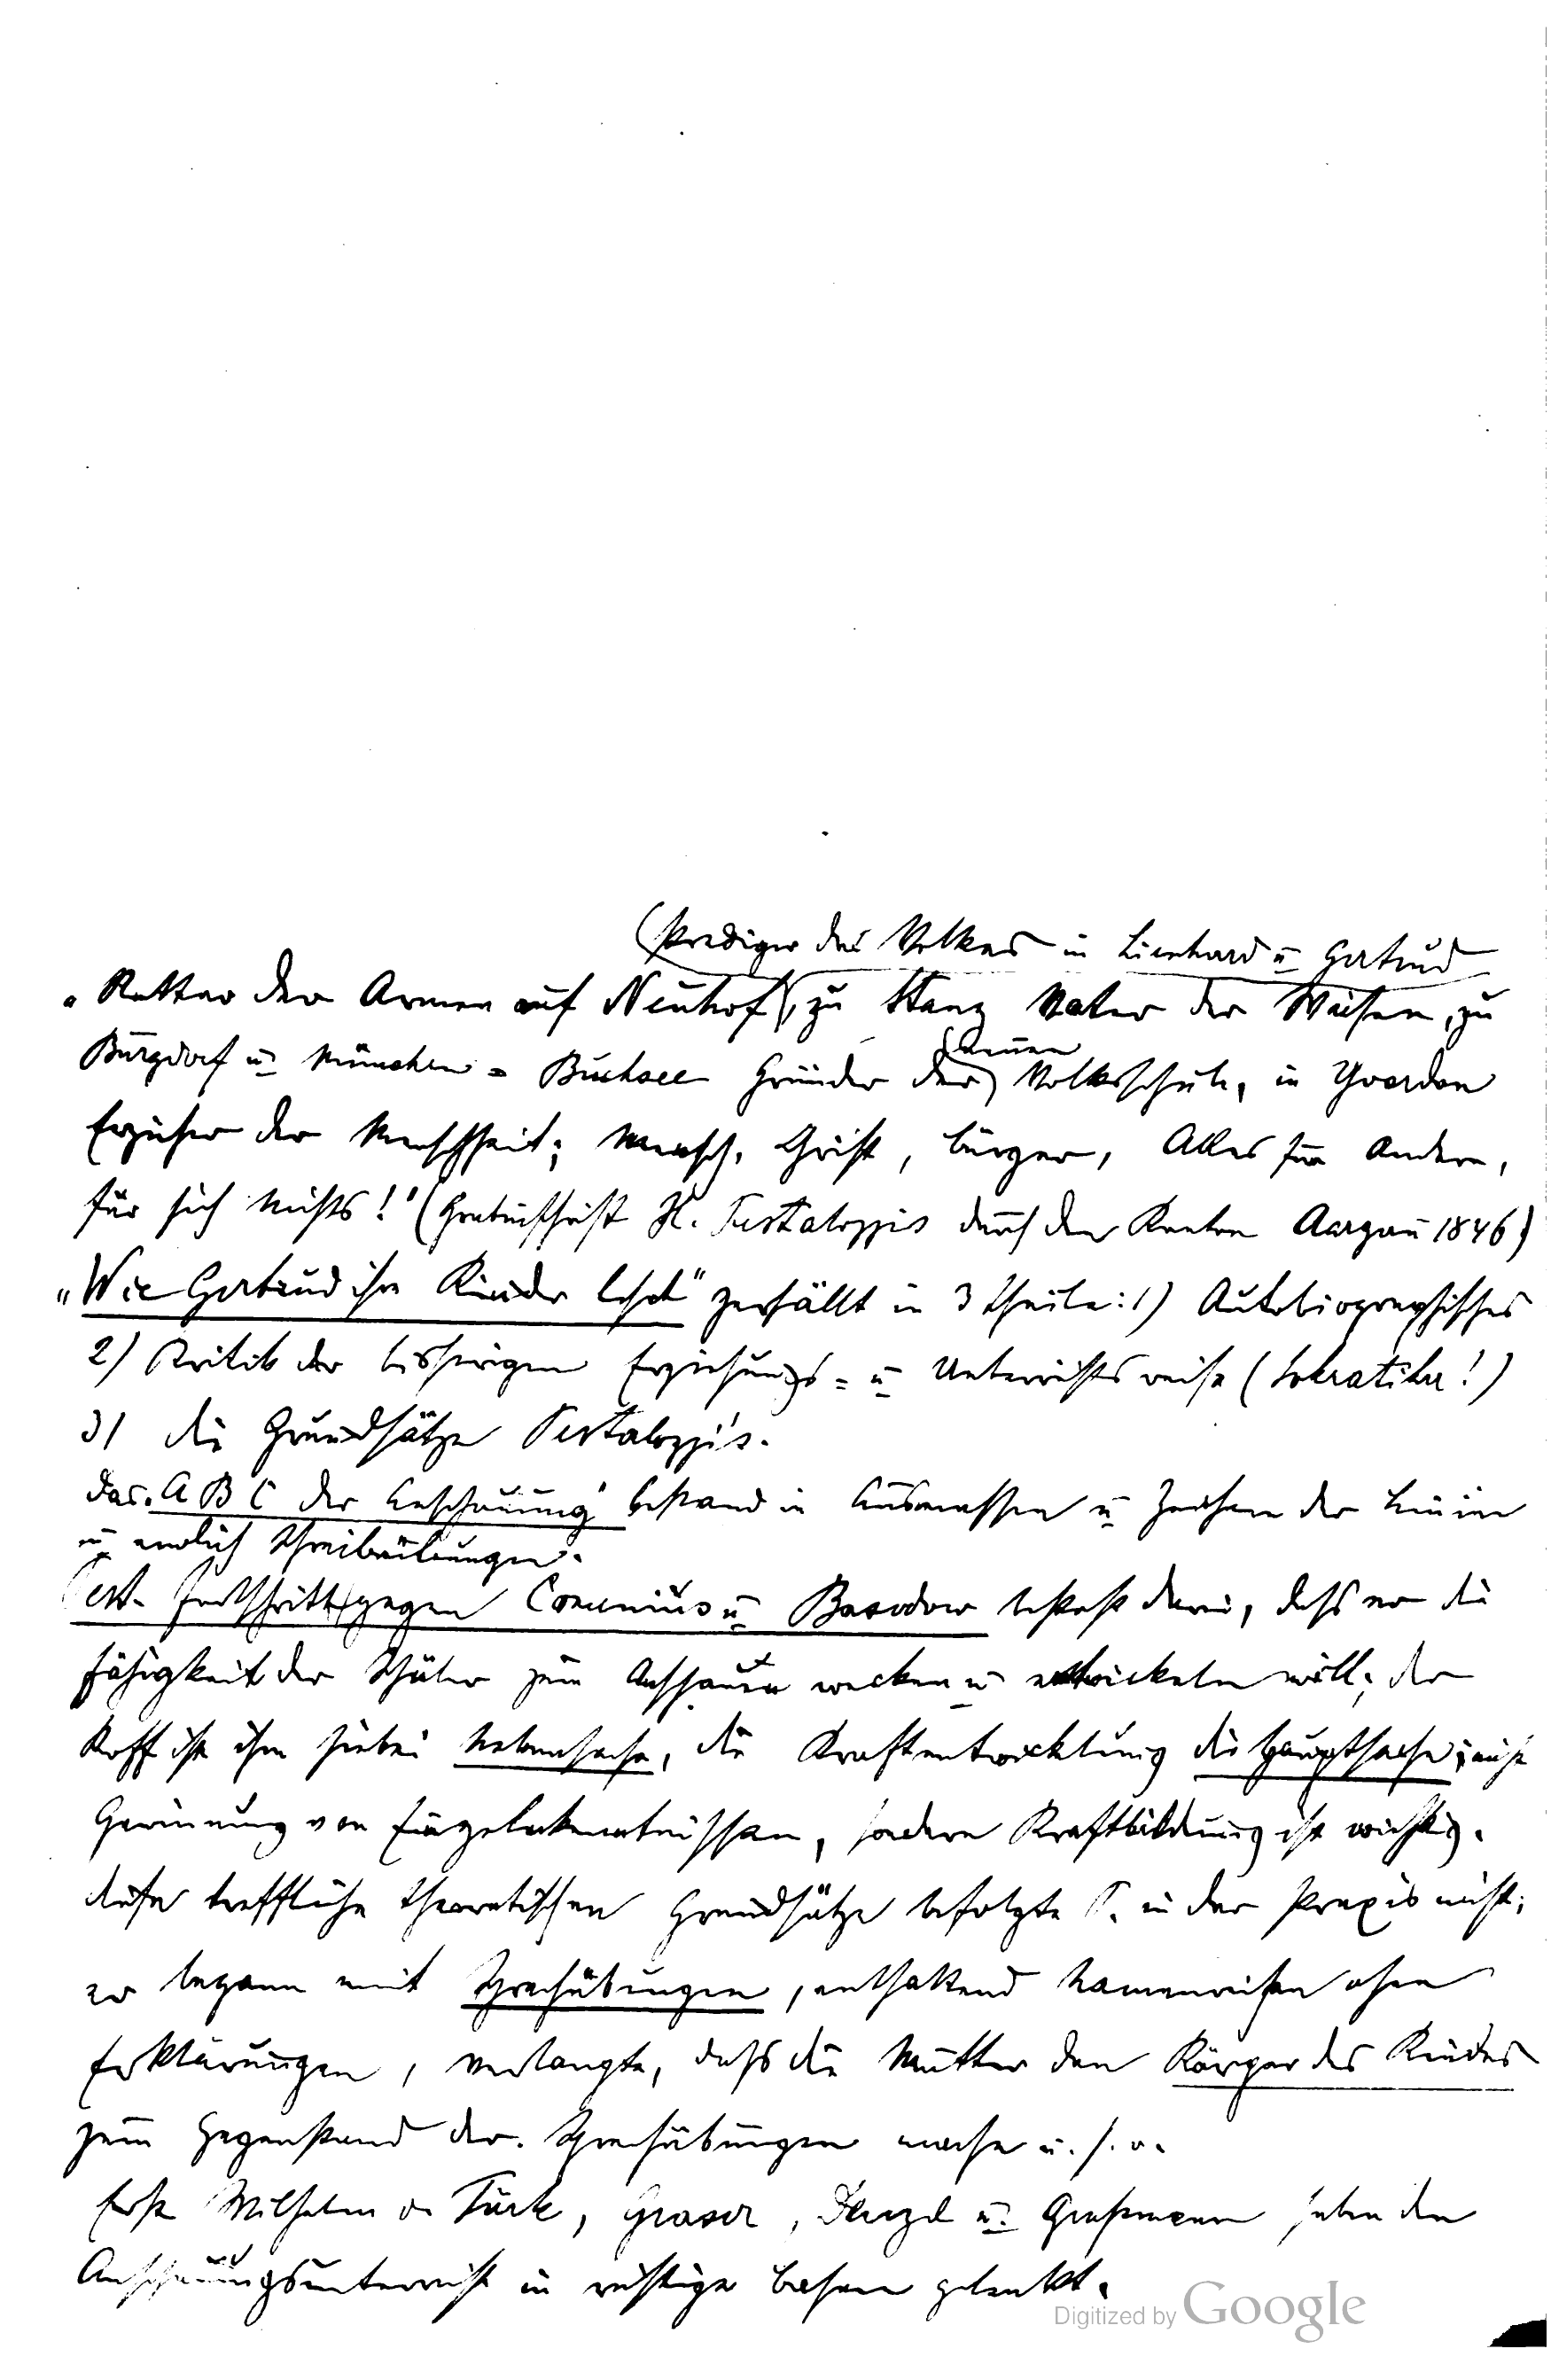 (Prediger des Volkes in Lienhard u. Gertrud
"Retter der Armen auf Neuhof), zu Stanz Vater der Waisen, zu
Burgdorf u. München=Buchsee Gründer der (neuen) Volksschule, in Yverdon
Erzieher der Menschheit; Mensch, Christ, Bürger, Alles für Andere,
für sich Nichts!" (Grabinschrift H. Pestalozzis durch den Kanton Aargau 1846)
"Wie Gertrud ihre Kinder lehrt" zerfällt in 3 Theile: 1) Autobiographisches
2) Kritik der bisherigen Erziehungs= u. Unterrichtsweise (Sokratiker!)
3) die Grundsätze Pestalozzi's.
Das "A B C der Anschauung" bestand in Ausmessen u. Zeichnen der Linien
u. endlich Schreibübungen.
Pest. Fortschritt gegen Comenius u. Basedow besteht darin, dass er die
Fähigkeit der Schüler zum Anschauen wecken u. entwickeln will; der
Stoff ist ihm hiebei Nebensache, die Kraftentwicklung die Hauptsache; nicht
Gewinnung von Einzelerkenntnissen, sondern Kraftbildung ist wichtig.
Diese treffliche theoretischen Grundsätze befolgte P. in der Praxis nicht;
er begann mit Sprechübungen, enthaltend Namenreihen ohne
Erklärungen, verlangte, dass die Mutter den Körper des Kindes
zum Gegenstand der Sprechübungen mache u. s. w.
Erst Wilhelm v. Türk, Graser, Denzel u. Grassmann haben den
Anschauungsunterricht in richtige Bahnen gelenkt.
Digitized by Google